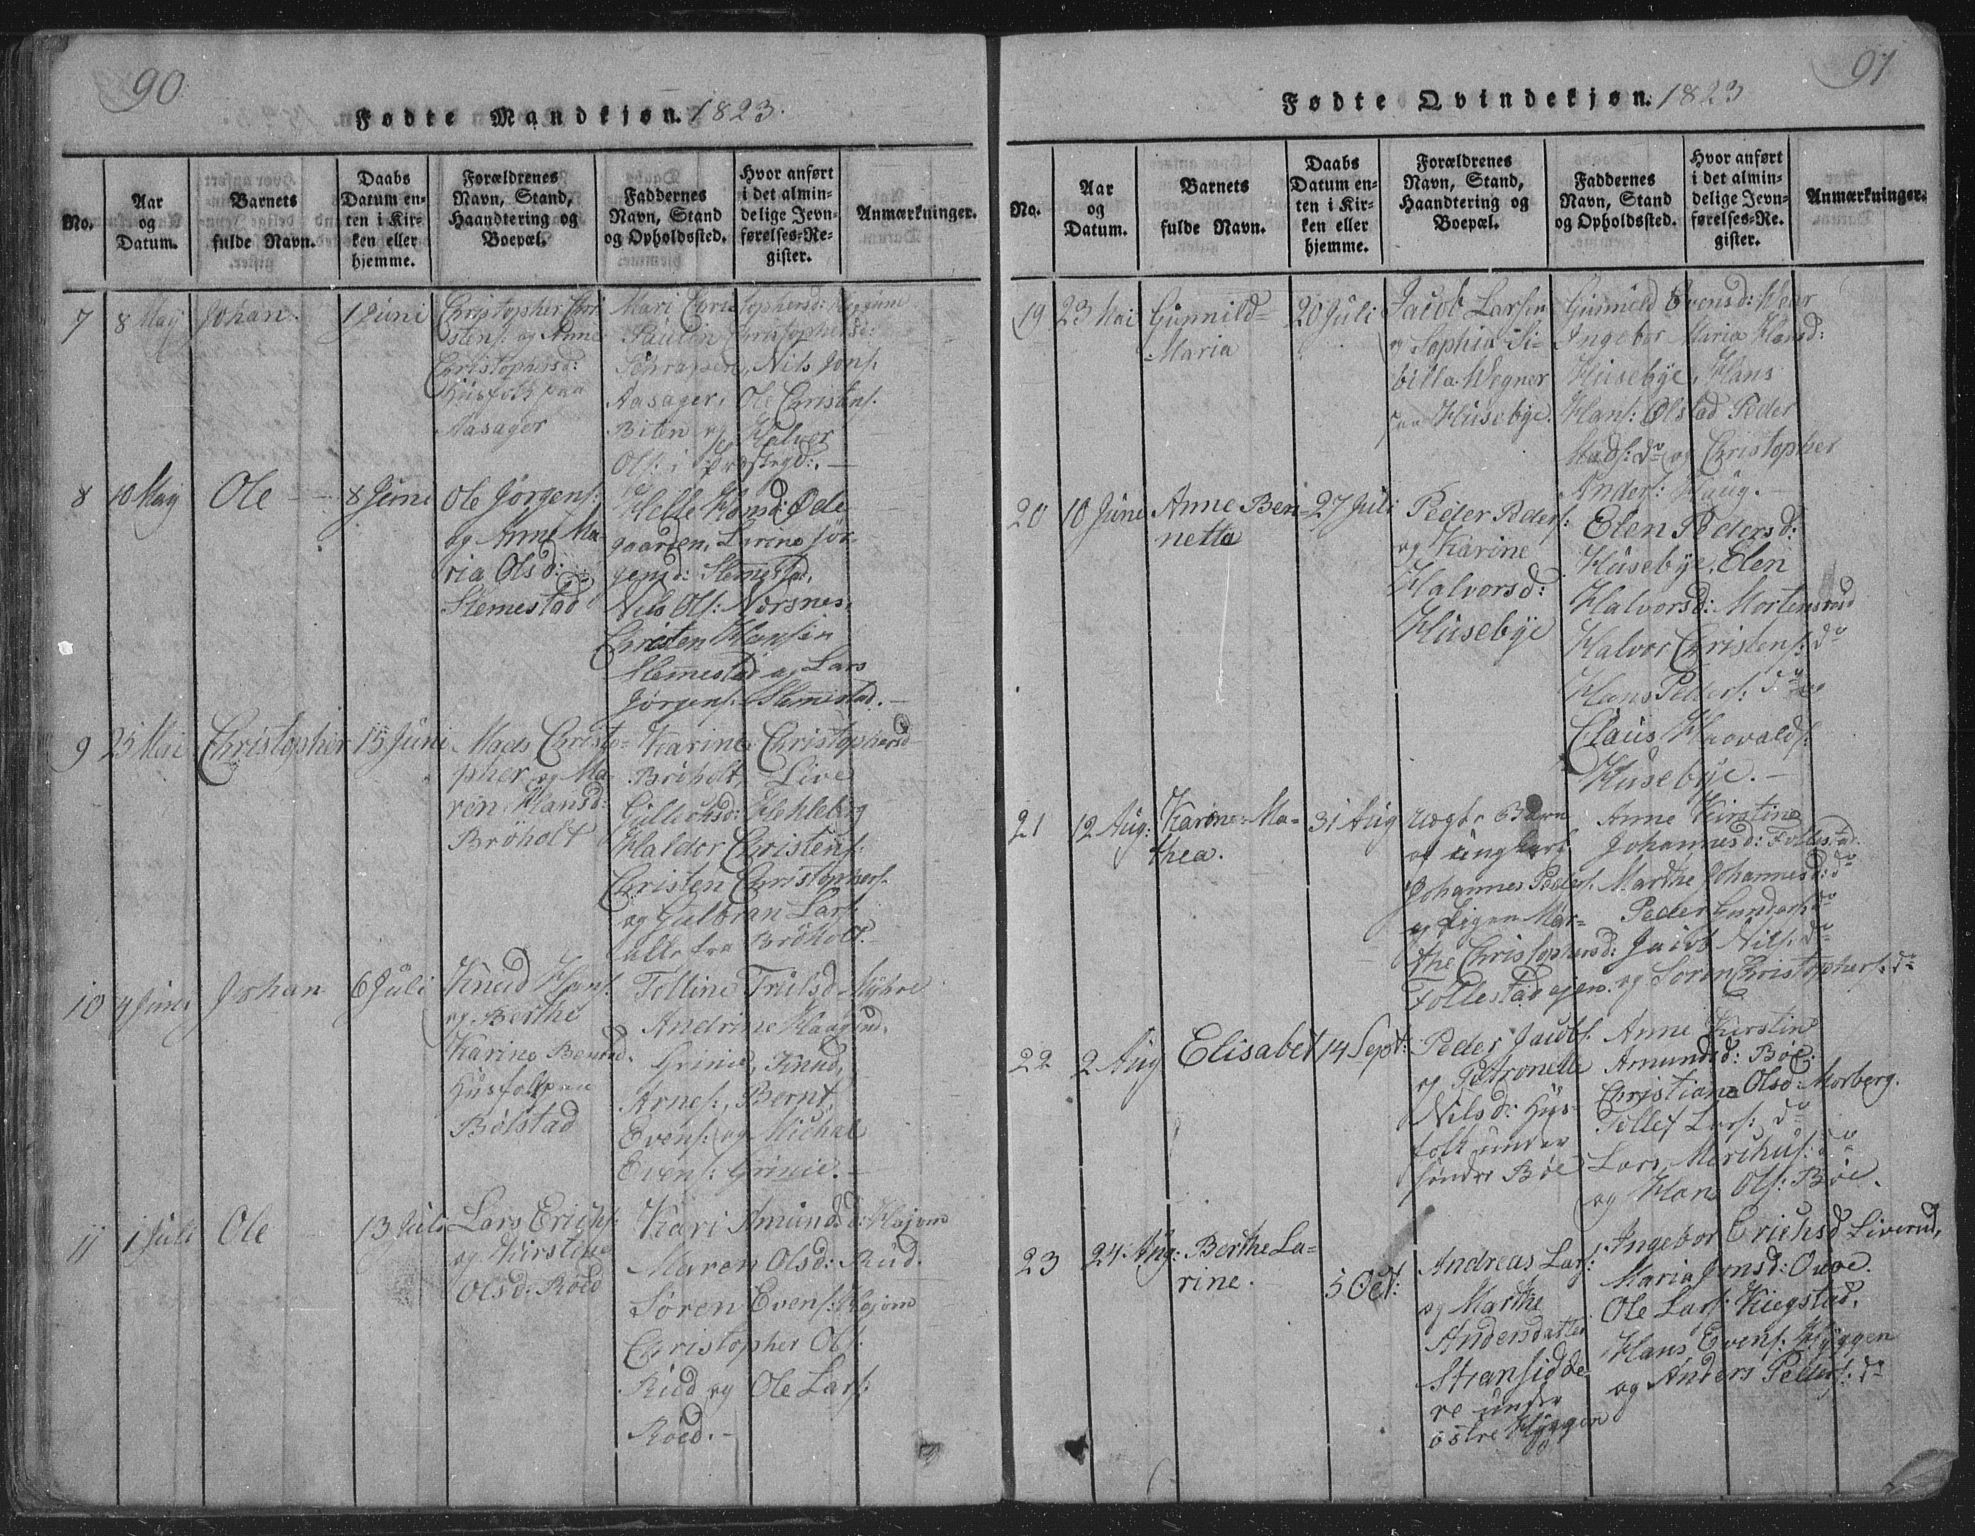 90
Fødte Mandkjøn. 1823.
No.
Aar
og
Datum.
Barnets
fulde Navn.
Daabs
Datum en-
ten i Kir-
ken eller
hjemme.
Forældrenes
Navn, Stand,
Haandtering og
Boepæl.
Faddernes
Navn, Stand
og Opholdssted.
Hvor anført
i det almin-
delige Jevn-
førelses-Re-
gister.
Anmærkninger.
7
8 Maj
Johan.
1 Juni
Christopher Chri-
stens: og Anne
Christophersd:
Husfolk paa
Aasager
Mari Christophersd:
Paulin Christophersd:
Schrapen, Nils Jons:
Aasager, Ole Christens:
Biten og Halvor
Ols: i Præstegd: —
8
10 Maj
Ole
8 Juni
Ole Jörgens:
og Anne Ma-
ria Olsd:
Slemestad
Helle Hansd: Öde
gaarden, Larine Jör-
gensd: Slemestad,
Nils Ols: Nærsnes,
Christen Hansen
Slemestad og Lars
Jørgens: Slemestad. —
9
25 Mai
Christopher
15 Juni
Mads Christo-
pher og Ma-
ren Hansd:
Bröholt
Karine Christophersd
Bröholt, Live
Gulleichsd: Hekleberg
Haldor Christens:
Christen Christophers:
og Gulbran Lars:
alle fra Bröholt.
10
9 Juni
Johan
6 Juli
Knud Hans:
og Berthe
Karine Berntsd.
Husfolk paa
Bölstad
Tolline Trulsd
Andrine Haagensd.
Grinie, Knud
Arnes:, Bernt
Evens: og Michal
Evens: Grinie. —
11
1 Juli
Ole
13 Juli
Lars Erichs:
og Kirstine
Olsd: Röed
Kari Amundsd: Högom
Maren Olsd: Rud.
Sören Evens: Högom
Christopher Ols:
Rud og Ole Lars:
Röed. —
91
Fødte Qvindekjøn. 1823
No.
Aar
og
Datum.
Barnets
fulde Navn.
Daabs
Datum en-
ten i Kir-
ken eller
hjemme.
Forældrenes
Navn, Stand,
Haandtering og
Boepæl.
Faddernes
Navn, Stand
og Opholdssted.
Hvor anført
i det almin-
delige Jevn-
førelses-Re-
gister.
Anmærkninger.
19
23 Mai
Gunnild-
Maria
20 Juli
Jacob Larsen
og Sophia Si-
billa Wegner
paa Husebye.
Gunnild Evensd:
Ingebor Maria Hansd:
Husebye, Hans
Hans: Ölstad Peder
Mads: do og Christopher
Anders: Haug. —
20
10 Juni
Anne Ben-
netta
27 Juli
Peder Peders:
og Karine
Halvorsd:
Husebye
Elen Pedersd:
Husebye, Elen
Halvorsd: Mortensrud
Halvor Christens: do
Hans Peders: do og
Claus Havvalds:
Husebye. —
21
12 Aug:
Karine Ma-
thea.
31 Aug
uægte Barn
af ungkarl
Johannes Peders.
og Pigen Mar-
the Christophersd:
Follestad ejen.
Anne Kirstine
Johannesd: Follestad.
Marthe Johannesd: do
Peder Gunders: do
Jacob Nils: do
og Sören Christophers: do
22
2 Aug
Elisabet
14 Sept:
Peder Jacobs:
og Petronelle
Nilsd: Hus-
folk under
söndre Böe
Anne Kirstin
Amundsd: Böe
Christiane Olsd: Morberg.
Tollef Lars: do
Lars Merchus: do
og Hans Ols: Böe.
23
24 Aug:
Berthe La-
rine.
5 Oct:
Andreas Lars:
og Marthe
Andersdatter
Stransidde-
re under
östre Hyggen
Ingebor Erichsd Liverud,
Maria Jensd: Ouve.
Ole Lars: Kiegstad,
Hans Evens: Hyggen
og Anders Peders: do